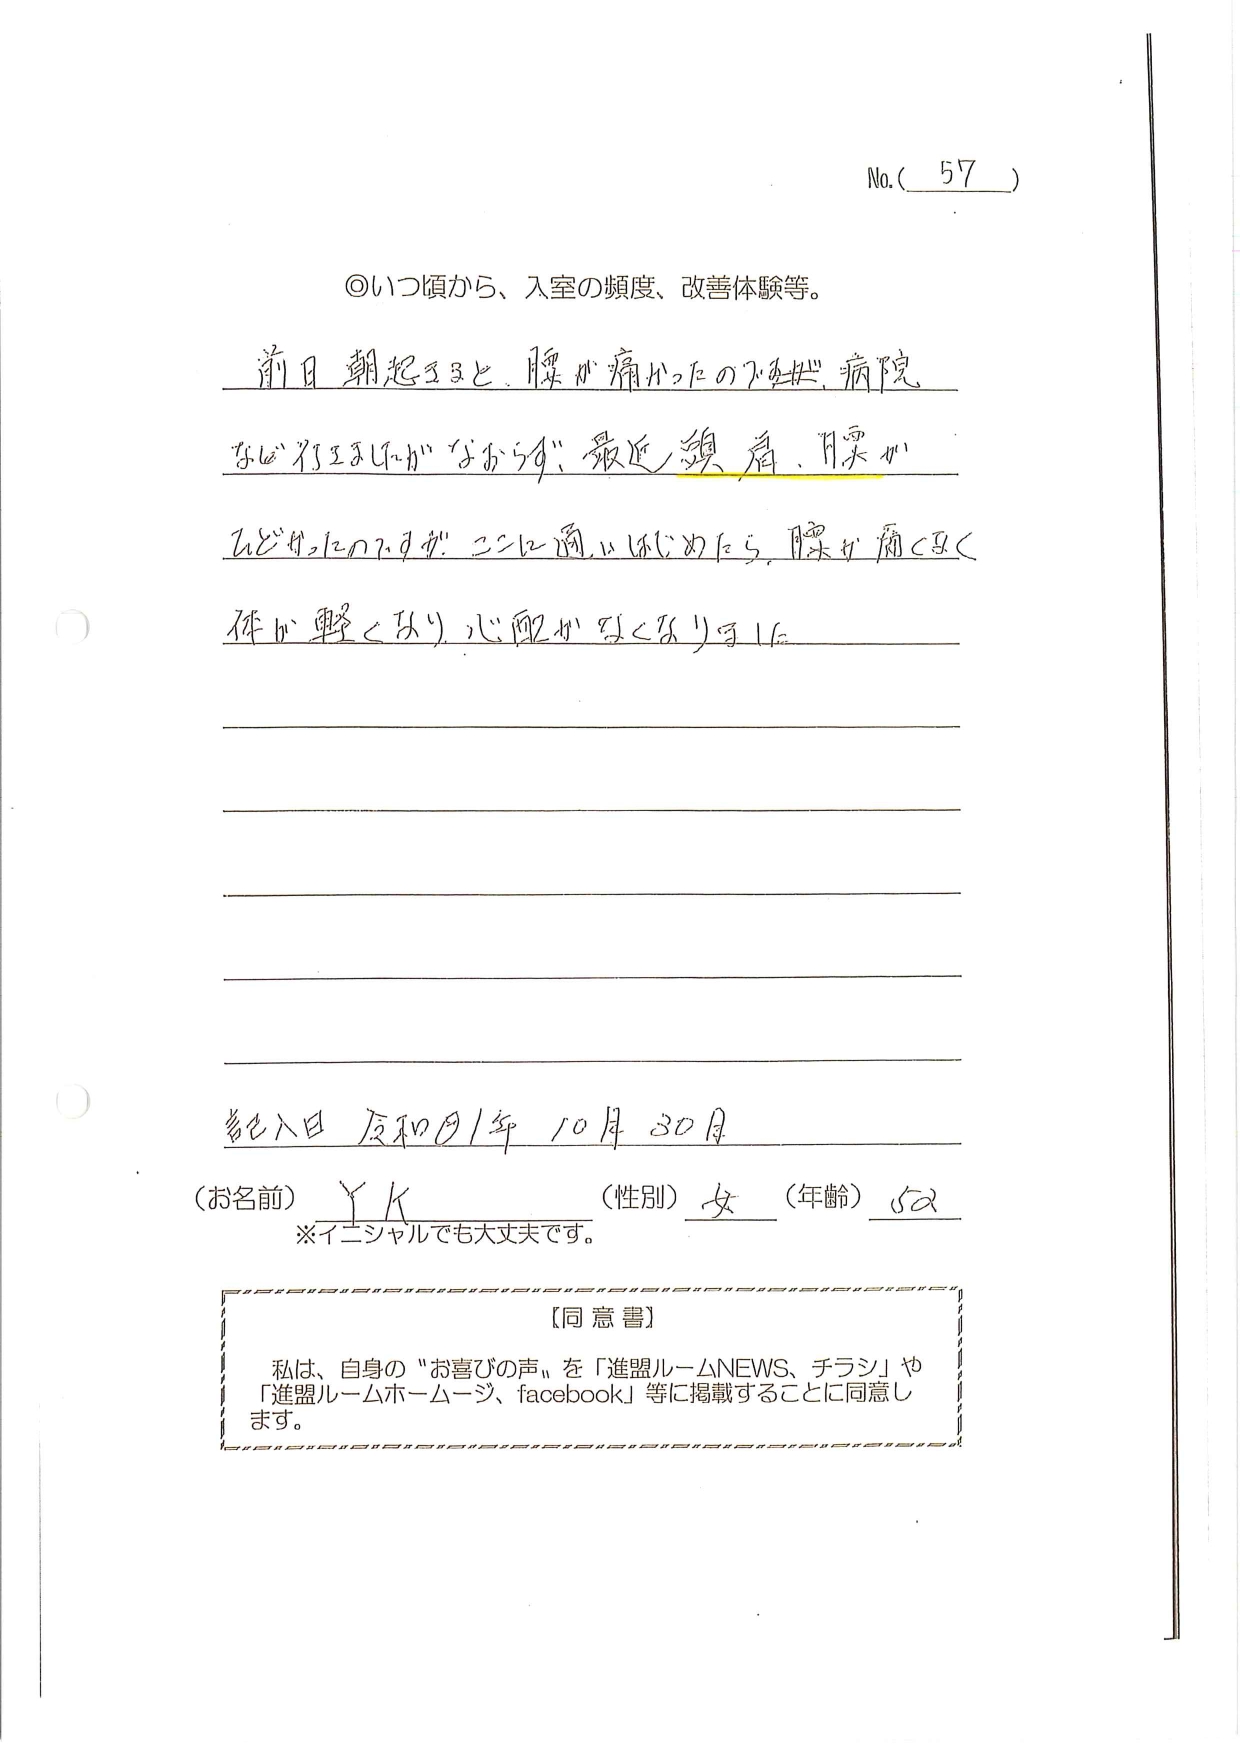 No.( 57 )
◎いつ頃から、入室の頻度、改善体験等。
前日 朝起きると、腰が痛かったので、病院
など行きましたがなおらず、最近 頭 肩、腰が
ひどかったのですが、ここに通いはじめたら、腰が痛くなく
体が軽くなり、心配がなくなりました
記入日 令和 1年 10月 30日
(お名前) Y K (性別) 女 (年齢) 52
※イニシャルでも大丈夫です。
【同意書】
私は、自身の〝お喜びの声〟を「進盟ルームNEWS、チラシ」や
「進盟ルームホームージ、facebook」等に掲載することに同意し
ます。